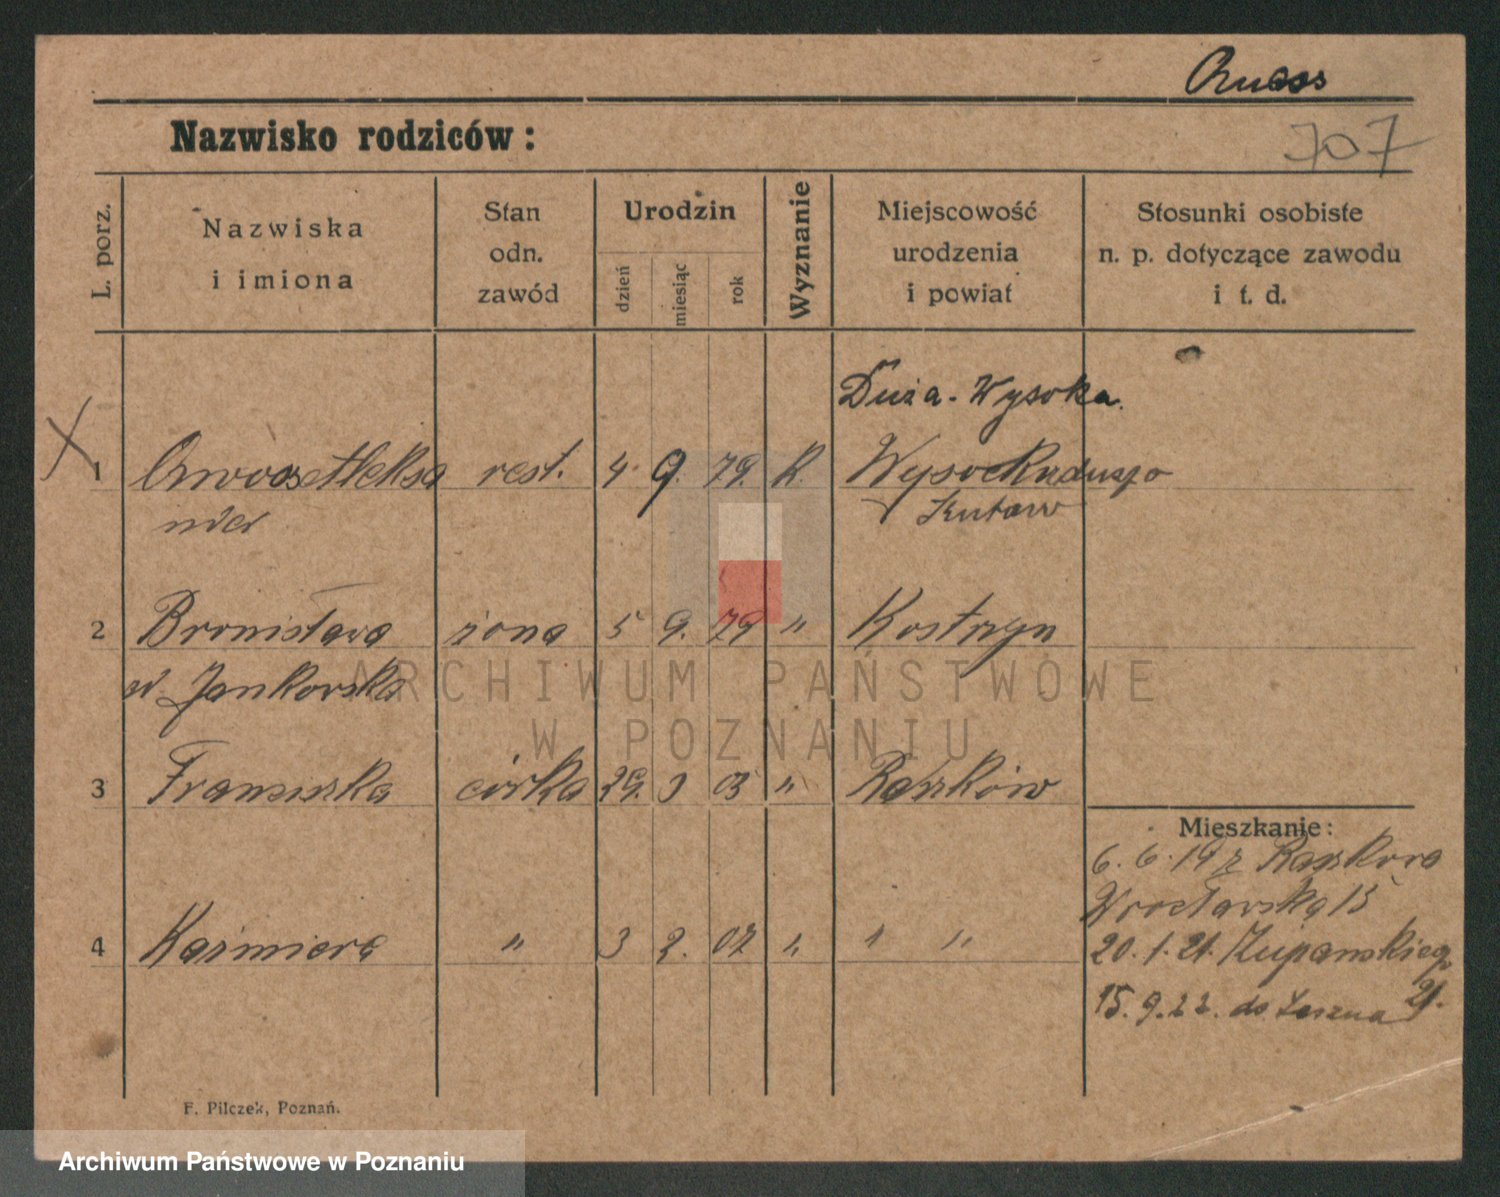 707
Nazwisko rodziców:
L. porz.
Nazwiska
i imiona
Stan
odn.
zawód
Urodzin
dzień
miesiąc
rok
Wyznanie
Miejscowość
urodzenia
i powiat
Stosunki osobiste
n. p. dotyczące zawodu
i t. d.
Duża-Wysoka
1 Aleksa rest. 4. 9. 79. K.
nder
2 Bronisława żona 5 9. 79 " Kostrzyn
Jankowska
3 Franciszka córka 29. 3 05 " Raszków
4 Kaźmiera " 3 2. 07 " " "
Mieszkanie:
6. 6. 19 z Raszkowa
Wrocławska 15
20. 1. 21. Żupańskiego
21.
15. 9. 22. do Leszna
F. Pilczek, Poznań.
ARCHIWUM PAŃSTWOWE
W POZNANIU
Archiwum Państwowe w Poznaniu